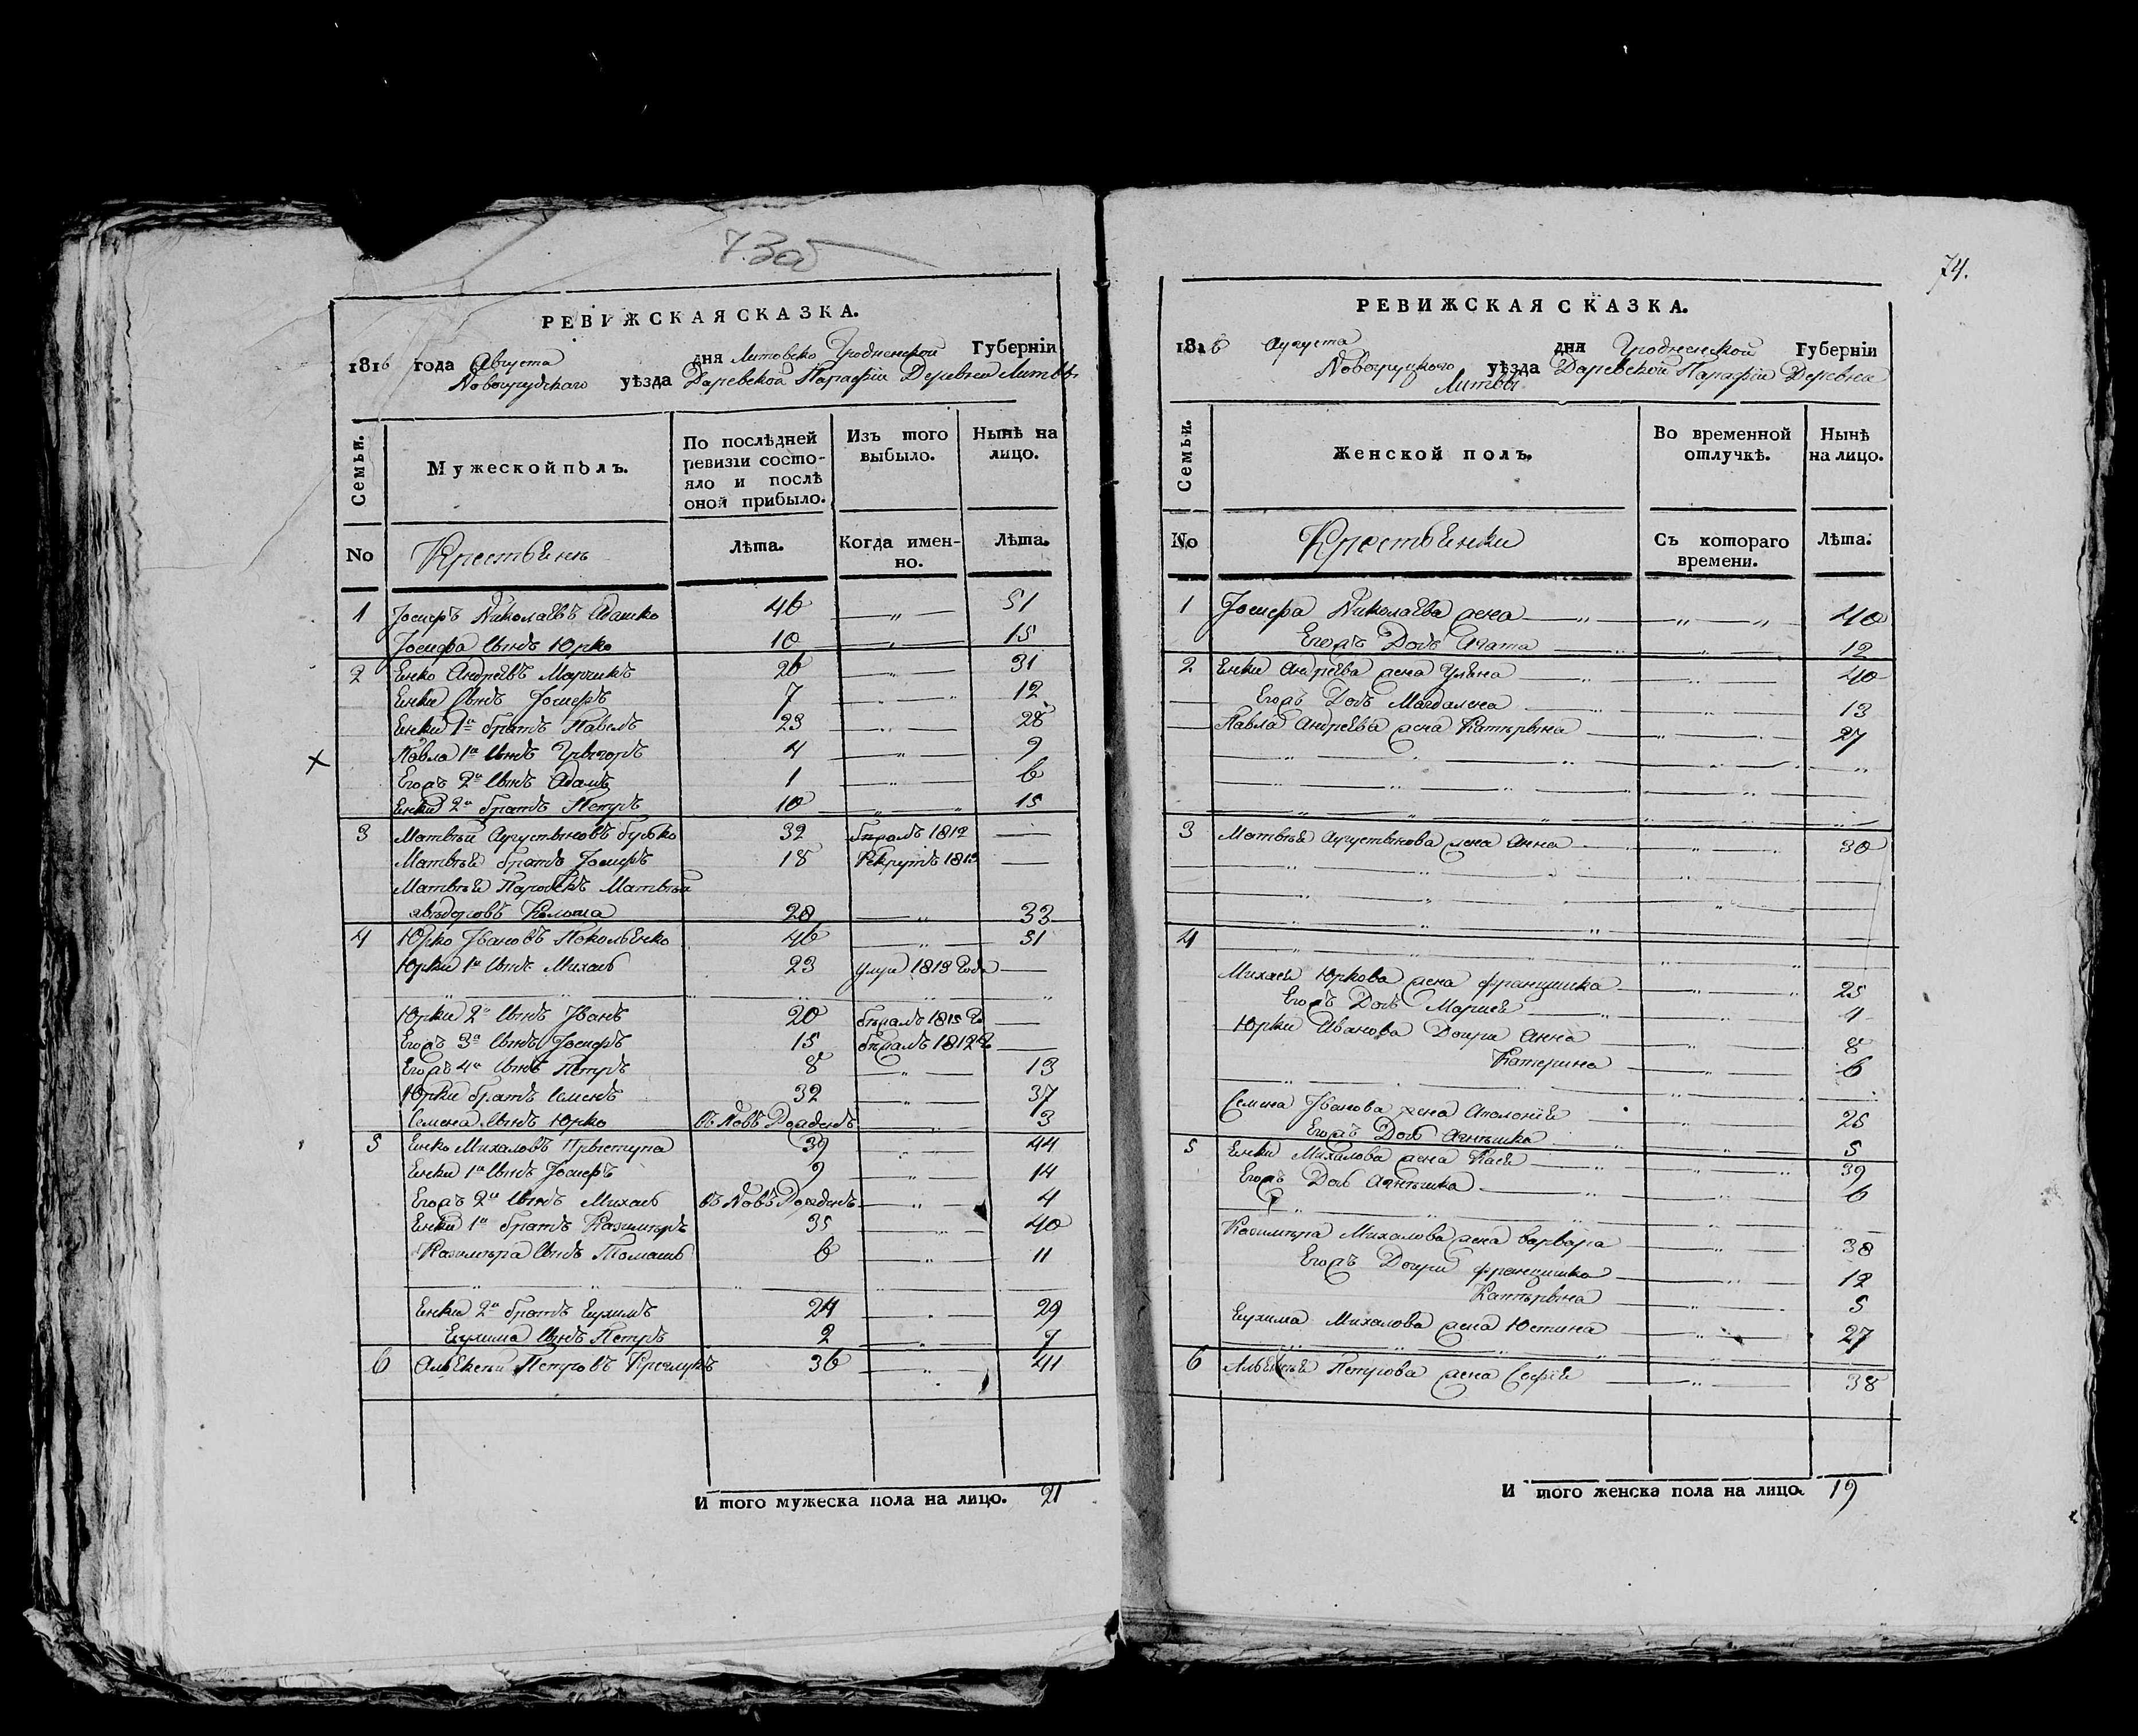 73об
РЕВИЖСКАЯ СКАЗКА.
1816 года Августа дня Литовско Гродненской Губерніи
Новогрудскаго уѣзда Даревской Парафіи Деревни Литвы
Семьи.
Мужеской полъ.
По послѣдней ревизіи состо-
яло и послѣ
оной прибыло.
Изъ того
выбыло.
Нынѣ на
лицо.
No
Крестьяне
Лѣта.
Когда имен-
но.
Лѣта.
1 Іосифъ Николаевъ Адашко 46 — „ — 51
Іосифа сынъ Юрко 10 — „ — 15
2 Янко Андреевъ 26 — „ — 31
Янки сынъ Іосифъ 7 — „ — 12
Янки 1й братъ Павелъ 23 — „ — 28
Павла 1й сынъ Григоръ 4 — „ — 9
Егожъ 2й сынъ Адамъ 1 — „ — 6
Янки 2й братъ Петръ 10 — „ — 15
3 Матвѣй Августыновъ 32 бѣжалъ 1812 —
Матвѣя братъ Іосифъ 18 Рекрутъ 1813 —
Матвѣя Паробокъ Матвѣй
28 — „ — 33
4 Юрко Ивановъ 46 — „ — 51
Юрки 1й сынъ Михалъ 23 умре 1813 Года —
Юрки 2й сынъ Иванъ 20 бѣжалъ 1815 Го —
Егожъ 3й сынъ Іосифъ 15 бѣжалъ 1812 Го —
Егожъ 4й сынъ Петръ 8 — „ — 13
Юрки братъ Семенъ 32 — „ — 37
Семена сынъ Юрко въ Новъ Рожденъ — „ — 3
5 Янко Михаловъ Прыступа 39 — „ — 44
Янки 1й сынъ Іосифъ 9 — „ — 14
Егожъ 2й сынъ Михалъ въ Новъ Рожденъ — „ — 4
Янки 1й братъ Казимѣръ 35 — „ — 40
Казимѣра сынъ Томашъ 6 — „ — 11
Янки 2й братъ Еухимъ 24 — „ — 29
Еухима сынъ Петръ 2 — „ — 7
6 Алексѣй Петровъ 36 — „ — 41
И того мужеска пола на лицо. 21
74.
РЕВИЖСКАЯ СКАЗКА.
1816 Августа дня Гродненской Губерніи
Новогруцкого уѣзда Даревской Парафіи Деревни
Литвы
Семьи.
Женской полъ.
Во временной
отлучкѣ.
Нынѣ
на лицо.
No
Крестьянки
Съ котораго
времени.
Лѣта.
1 Іосифа Николаева жена — „ — „ — „ 40
Егожъ Дочь Агата — „ — 12
2 Янки Андреева жена Уляна — „ — 40
Егожъ Дочь Магдалена — „ — 13
Павла Андреева жена Катърына — „ — 27
3 Матвѣя Аугустынова жена Анна — „ — 30
4
Михала Юркова жена Францишка — „ — 25
Егожъ Дочь Марыя — „ — 4
Юрки Иванова Дочри Анна — „ — 8
Катерина — „ — 6
Семена Иванова жена Аполонія — „ — 25
Егожъ Дочь Агнѣшка — „ — 5
5 Янки Михалова жена Кася — „ — 39
Егожъ Дочь Агнѣшка — „ — 6
Казимѣра Михалова жена Варвара — „ — 38
Егожъ Дочри Францишка — „ — 12
Катърына — „ — 5
Еухима Михалова жена Юстина — „ — 27
6 Алексѣя Петрова жена Софія — „ — 38
И того женска пола на лицо. 19